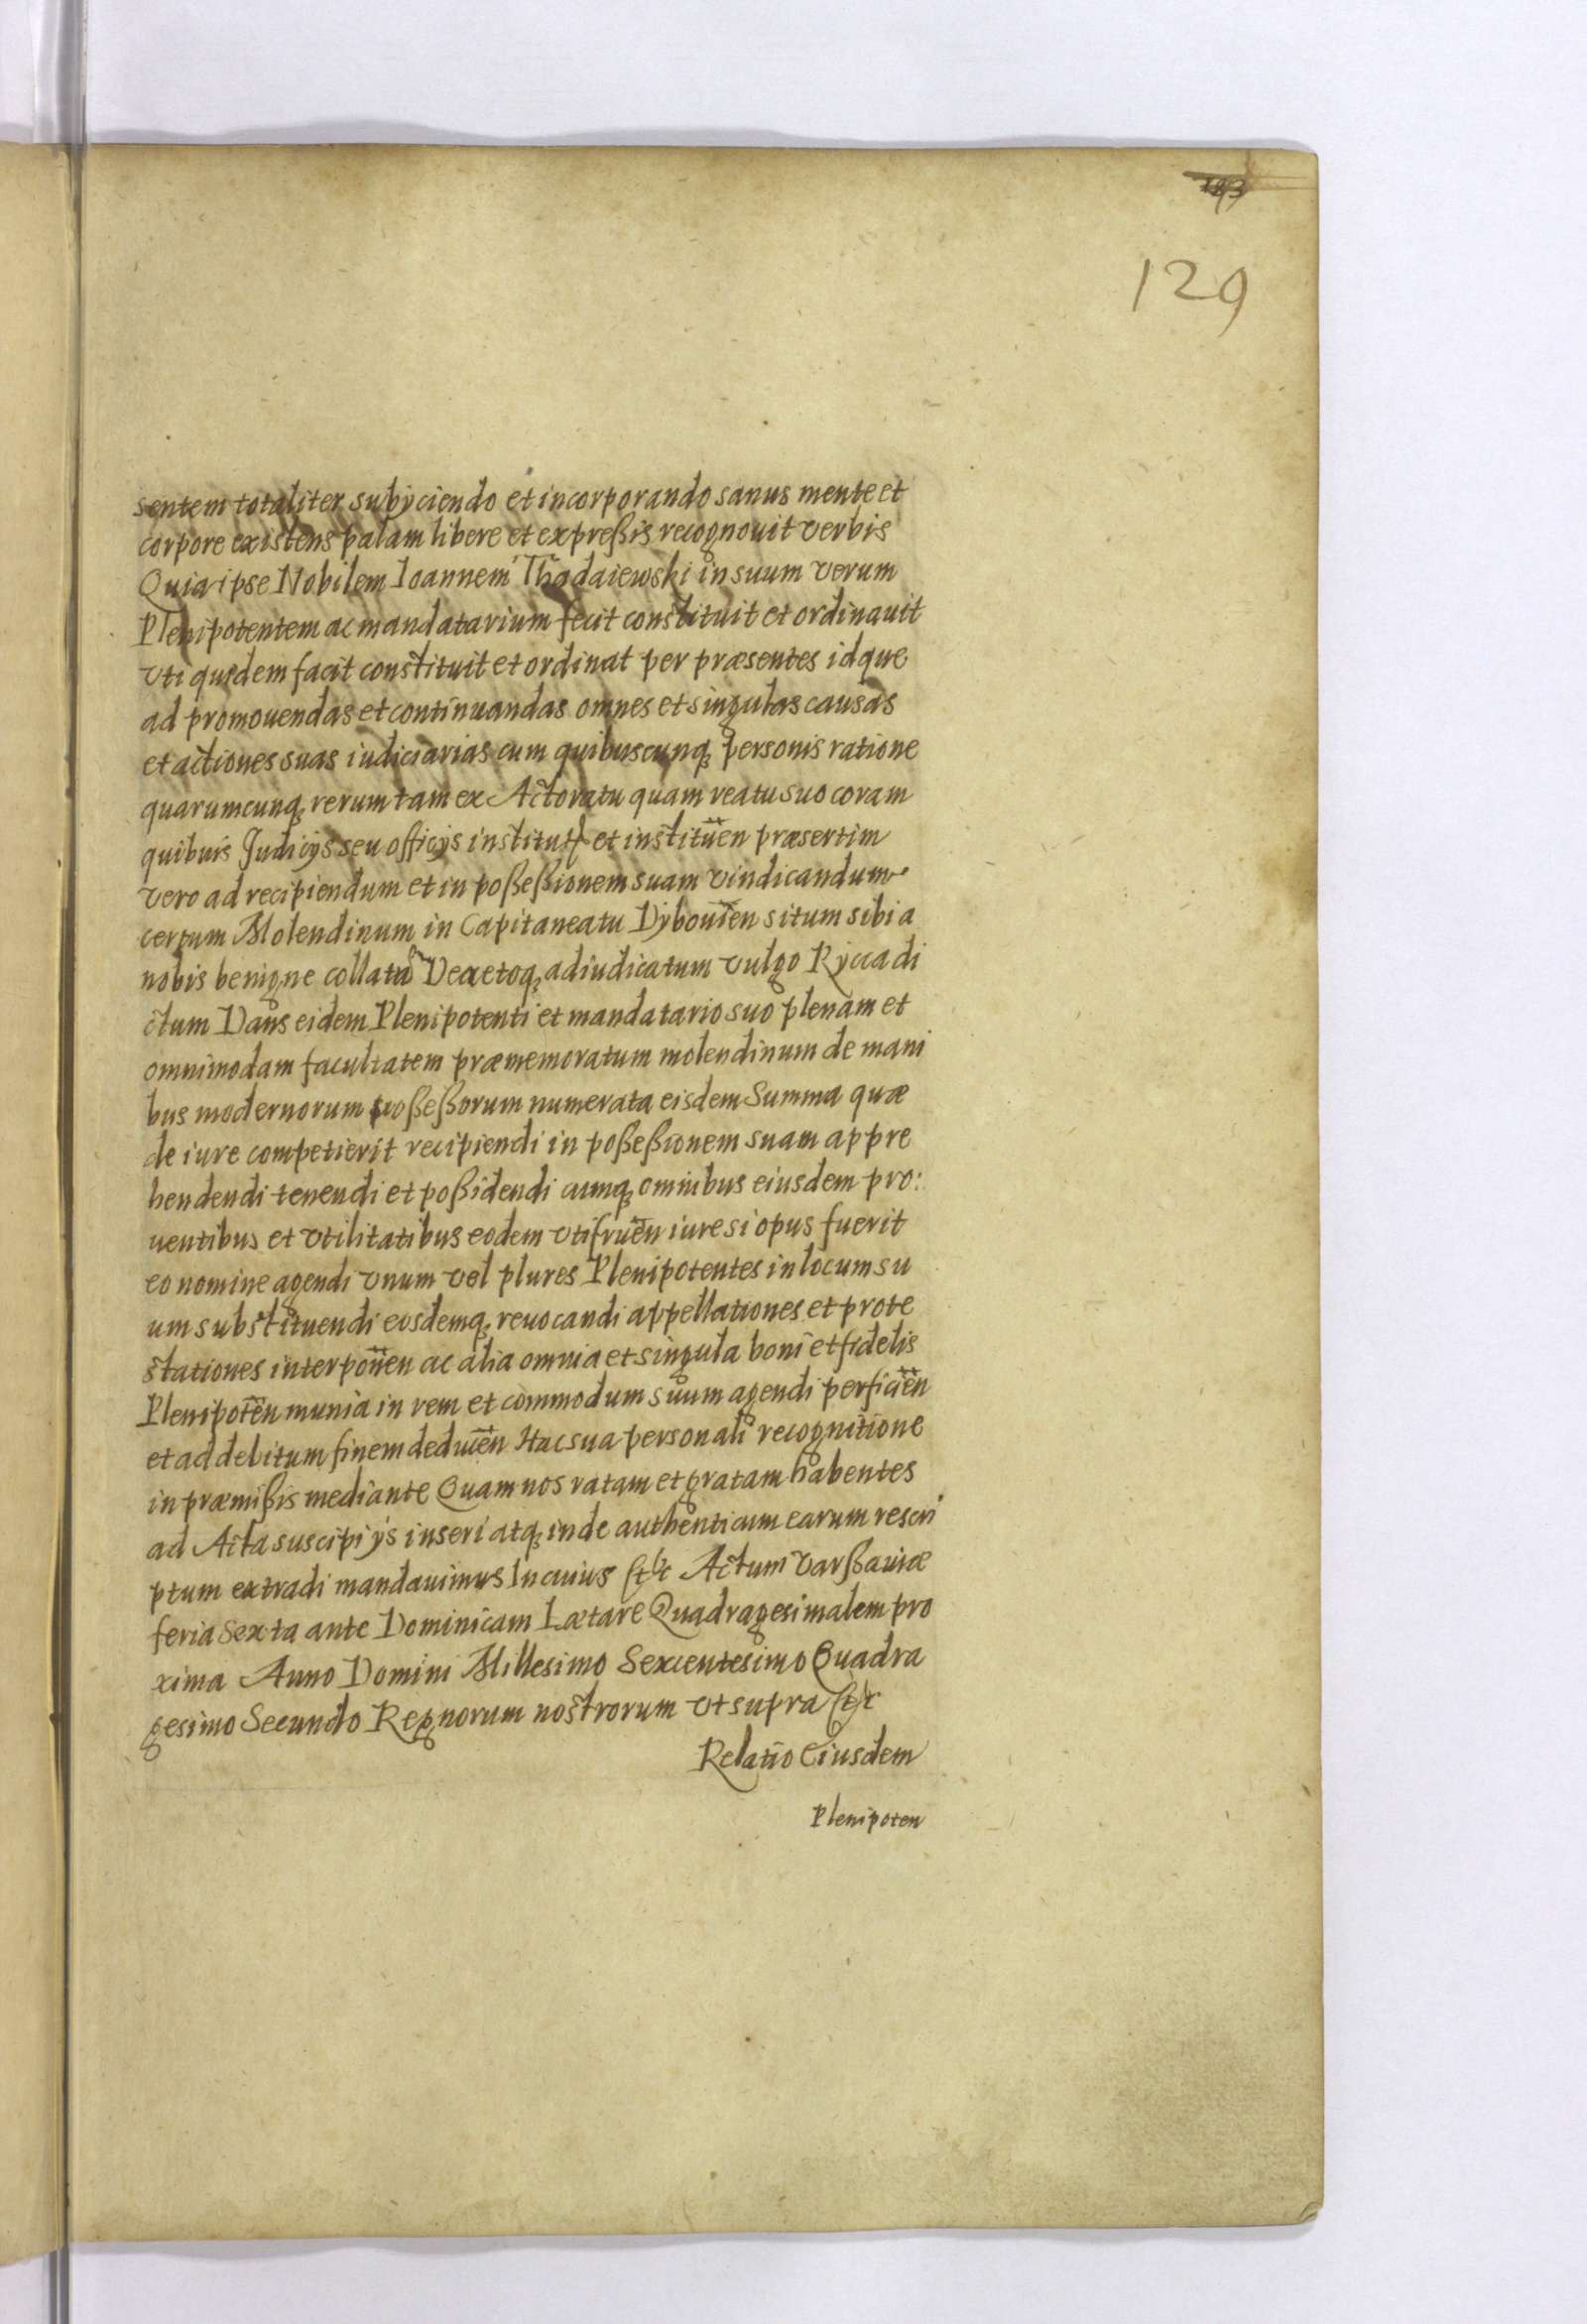 129
sentem totaliter subyciendo et incorporando sanus mente et
corpore existens palam libere et expreßis recognouit verbis
Quia ipse Nobilem Ioannem Thadaiewski in suum verum
Plenipotentem ac mandatarium fecit constituit et ordinauit
vti quidem facit constituit et ordinat per præsentes idque
ad promouendas et continuandas omnes et singulas causas
et actiones suas iudiciarias cum quibuscunq personis ratione
quarumcunq rerum tam ex Actoratu quam reatu suo coram
quibuis Judicijs seu officijs institut et instituen præsertim
vero ad recipiendum et in poßeßionem suam vindicandum
certum Molendinum in Capitaneatu Dybouien situm sibi a
nobis benigne collatum Decretoq adiudicatum vulgo Rycca di
ctum Dans eidem Plenipotenti et mandatario suo plenam et
omnimodam facultatem præmemoratum molendinum de mani
bus modernorum poßeßorum numerata eisdem Summa quæ
de iure competierit recipiendi in poßeßionem suam appre
hendendi tenendi et poßidendi cumq omnibus eiusdem pro:
uentibus et vtilitatibus eodem vtifruen iure si opus fuerit
eo nomine agendi vnum vel plures Plenipotentes in locum su
um substituendi eosdemq reuocandi appellationes et prote
stationes interponen ac alia omnia et singula boni et fidelis
Plenipoten munia in rem et commodum suum agendi perficien
et ad debitum finem deducen Hac sua personali recognitione
in præmißis mediante Quam nos ratam et gratam habentes
ad Acta suscipi ijs inseri atq inde authenticum earum rescri
ptum extradi mandauimus In cuius etc Actum Varßauiæ
feria Sexta ante Dominicam Lætare Quadragesimalem pro
xima Anno Domini Millesimo Sexcentesimo Quadra
gesimo Secundo Regnorum nostrorum vt supra etc
Relatio Eiusdem
Plenipoten